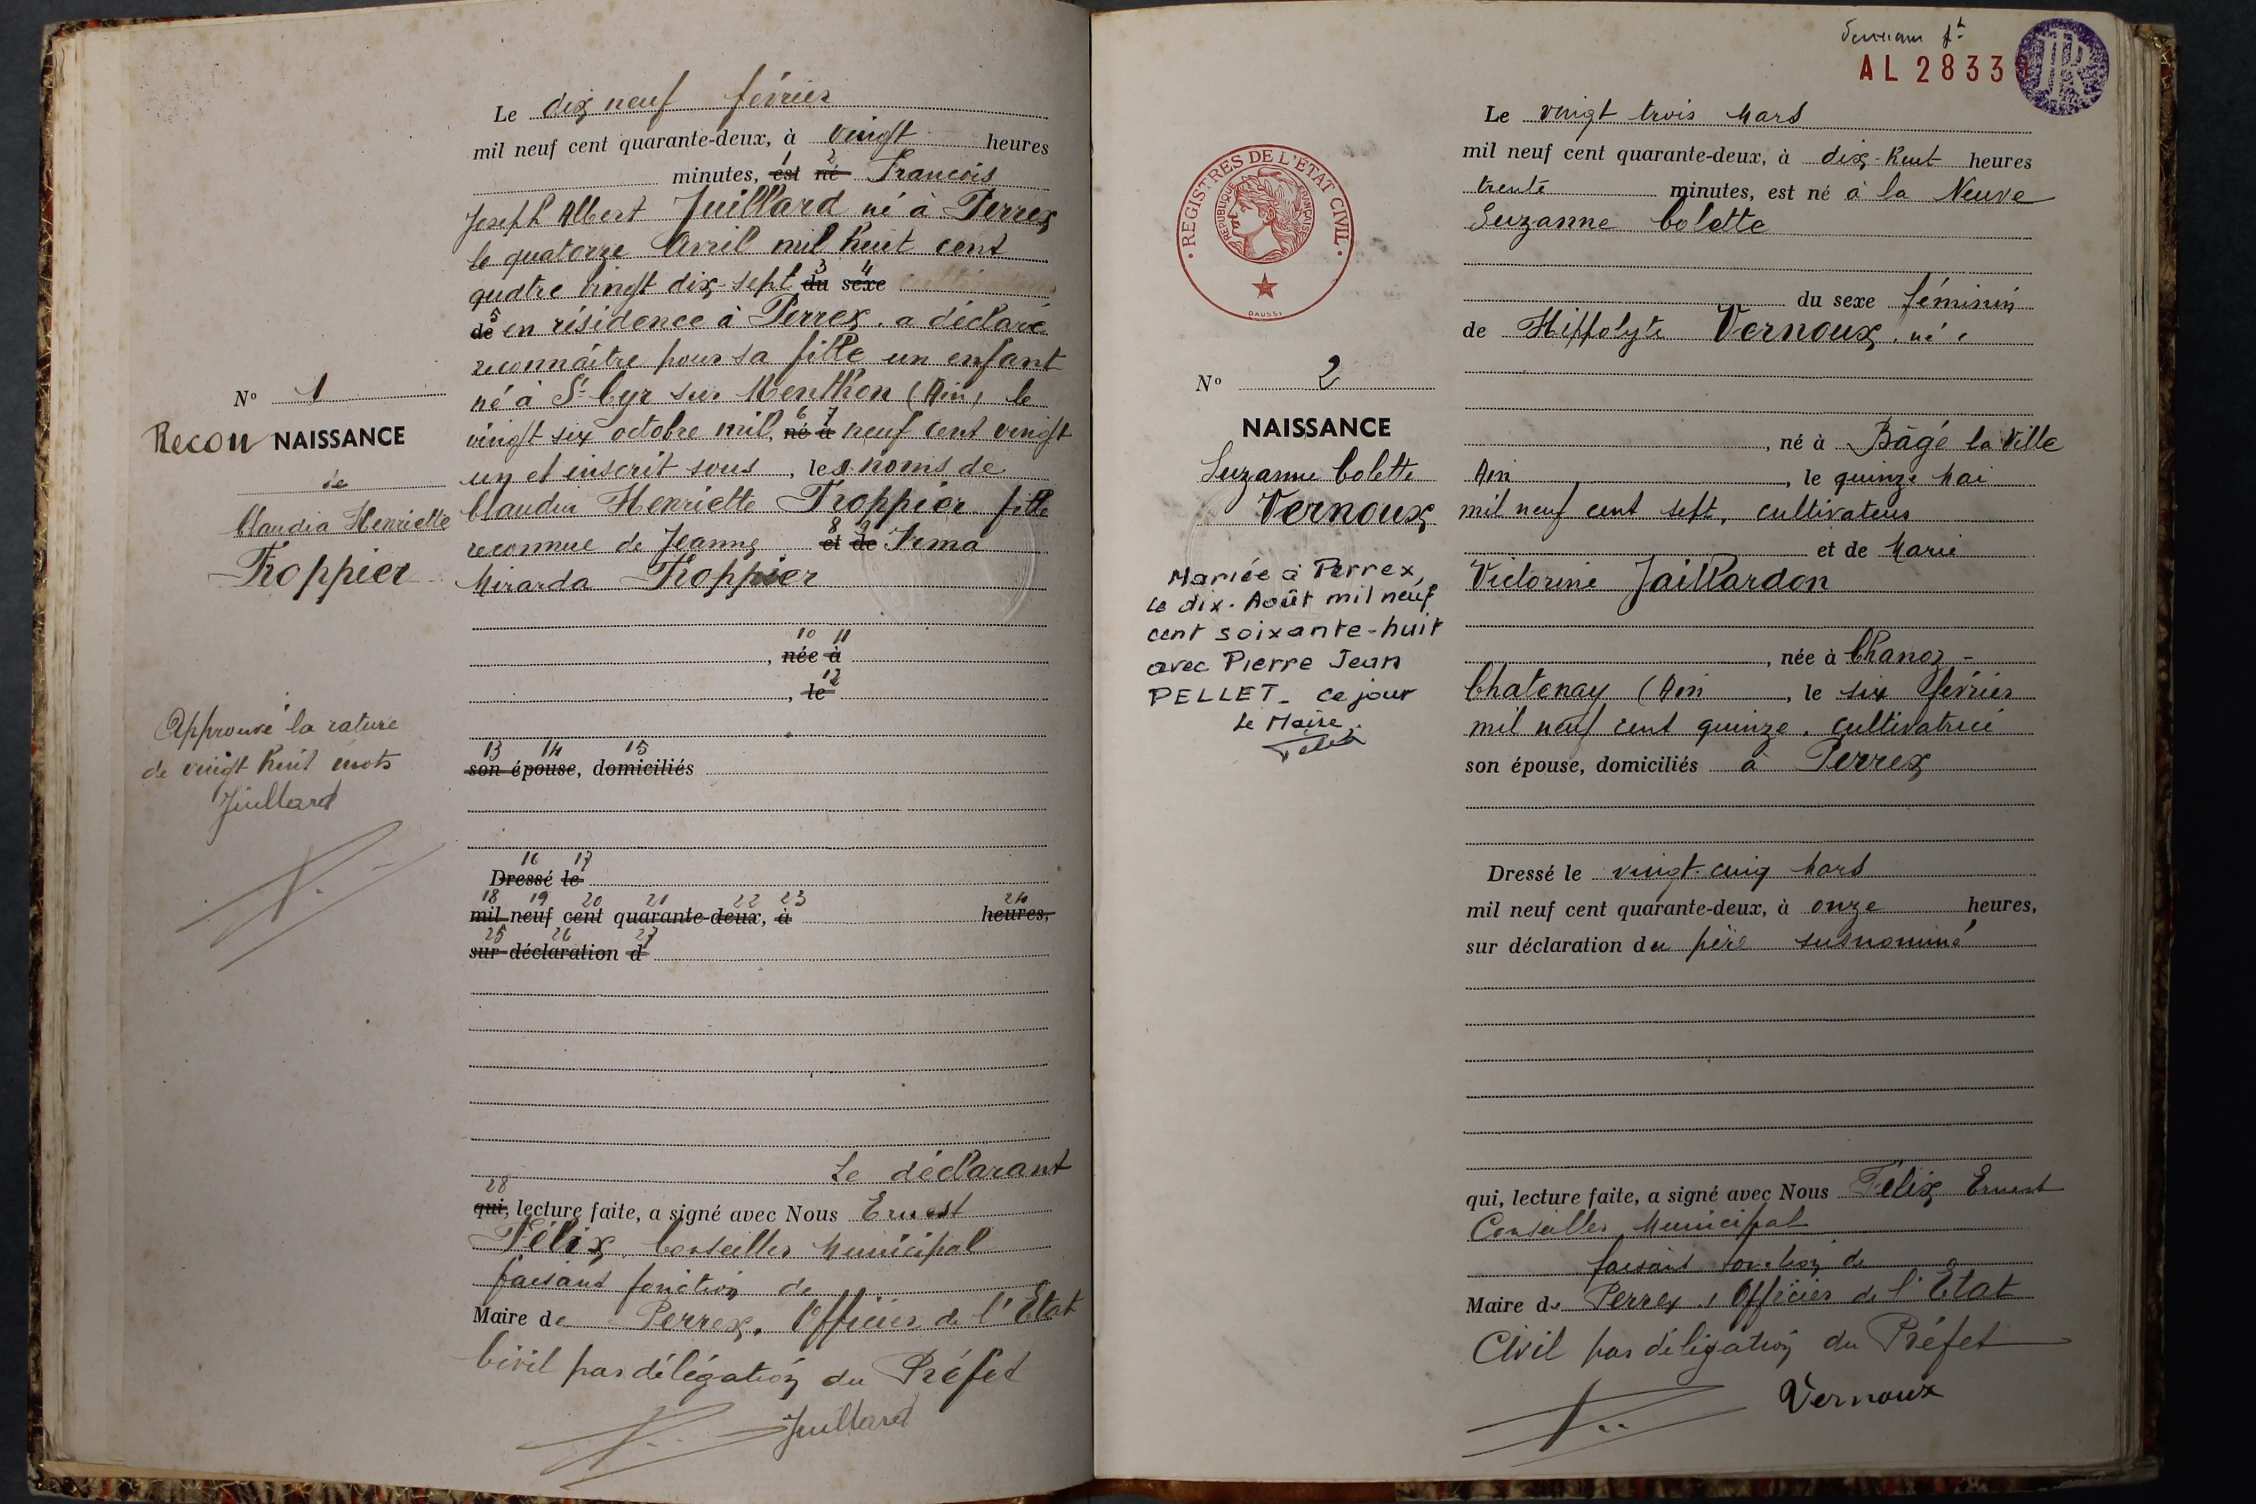 Le dix neuf février
mil neuf cent quarante-deux, à vingt heures
minutes, est 1 né 2 François
Joseph Albert Juillard né à Perrex
le quatorze Avril mil huit cent
quatre vingt dix-sept du 3 sexe 4
de 5 en résidence à Perrex. a déclaré
reconnaître pour sa fille un enfant
né à St Cyr sur Menthon (Ain) le
vingt six octobre mil, né 6 à 7 neuf cent vingt
un et inscrit sous, les noms de
Claudia Henriette Troppier fille
reconnue de Jeanne et 8 de 9 Irma
Miranda Troppier
, née 10 à 11
, le 12
son 13 épouse 14, domiciliés 15
Dressé 16 le 17
mil 18 neuf 19 cent 20 quarante 21-deux 22, à 23 heures 24,
sur 25 déclaration 26 d 27
Le déclarant
qui 28, lecture faite, a signé avec Nous Ernest
Félix, Conseiller Municipal
faisant fonction de
Maire de Perrex. Officier de l'Etat
Civil par délégation du Préfet
Juillard
N° 1
Recon NAISSANCE
de
Claudia Henriette
Troppier
Approuvé la rature
de vingt huit mots
Juillard
AL 2833
REGISTRES DE L'ETAT CIVIL
REPUBLIQUE FRANÇAISE
DAUSSY
N° 2
NAISSANCE
Suzanne Colette
Vernoux
Mariée à Perrex,
le dix. Août mil neuf
cent soixante-huit
avec Pierre Jean
PELLET_ ce jour
Le Maire.
Le vingt trois Mars
mil neuf cent quarante-deux, à dix-huit heures
trente minutes, est né à la Neuve
Suzanne Colette
du sexe féminin
de Hippolyte Vernoux, né
, né à Bâgé la Ville
Ain, le quinze Mai
mil neuf cent sept, cultivateur
et de Marie
Victorine Jaillardon
, née à Chanoz-
Chatenay (Ain, le six février
mil neuf cent quinze, cultivatrice
son épouse, domiciliés à Perrex
Dressé le vingt-cinq Mars
mil neuf cent quarante-deux, à onze heures,
sur déclaration du père susnommé
qui, lecture faite, a signé avec Nous Félix Ernest
Conseiller Municipal
faisant fonction de
Maire de Perrex, Officier de l'Etat
Civil par délégation du Préfet
Vernoux